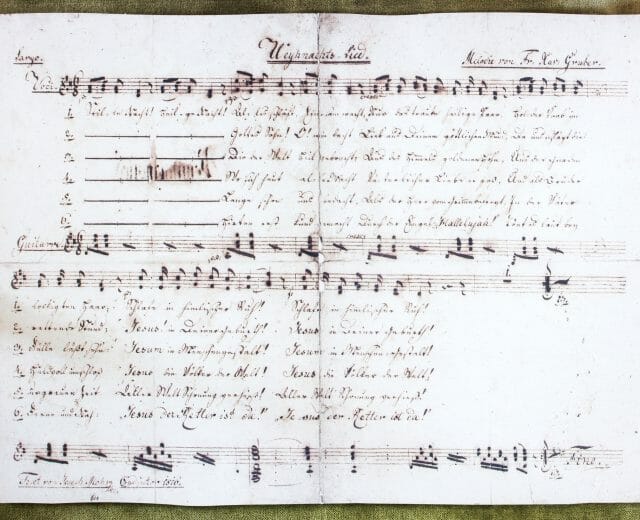 Largo. Weyhnachts-Lied. Melodie von Fr. Xav. Gruber.
Voci
1. Stille Nacht! Heilige Nacht! Alles schläft. Einsam wacht. Nur das traute heilige Paar. Holder Knab im
2. Gottes Sohn! O! wie lacht Lieb' aus deinem göttlichen Mund, Da uns schlägt die
3. Die der Welt Heil gebracht, Aus des Himmels goldenen Höhn, Uns der Gnaden
4. Wo sich heut alle Macht Väterlicher Liebe ergoß, Und als Bruder
5. Lange schon uns bedacht, Als der Herr vom Grimme befreyt, In der Väter
6. Hirten erst kund gemacht Durch der Engel Hallelujah! Tönt es laut bey
Guitarre
1. lockigten Haar; Schlafe in himmlischer Ruh! Schlafe in himmlischer Ruh!
2. rettende Stund; Jesus! in deiner Geburth! Jesus! in deiner Geburth!
3. Fülle läßt sehen: Jesum in Menschengestalt! Jesum in Menschengestalt!
4. huldvoll umschloß Jesus die Völker der Welt! Jesus die Völker der Welt!
5. urgrauer Zeit Aller Welt Schonung verhieß! Aller Welt Schonung verhieß!
6. Ferne und Nah: Jesus der Retter ist da! Jesus der Retter ist da!
Fine.
Text von Joseph Mohr 1816.